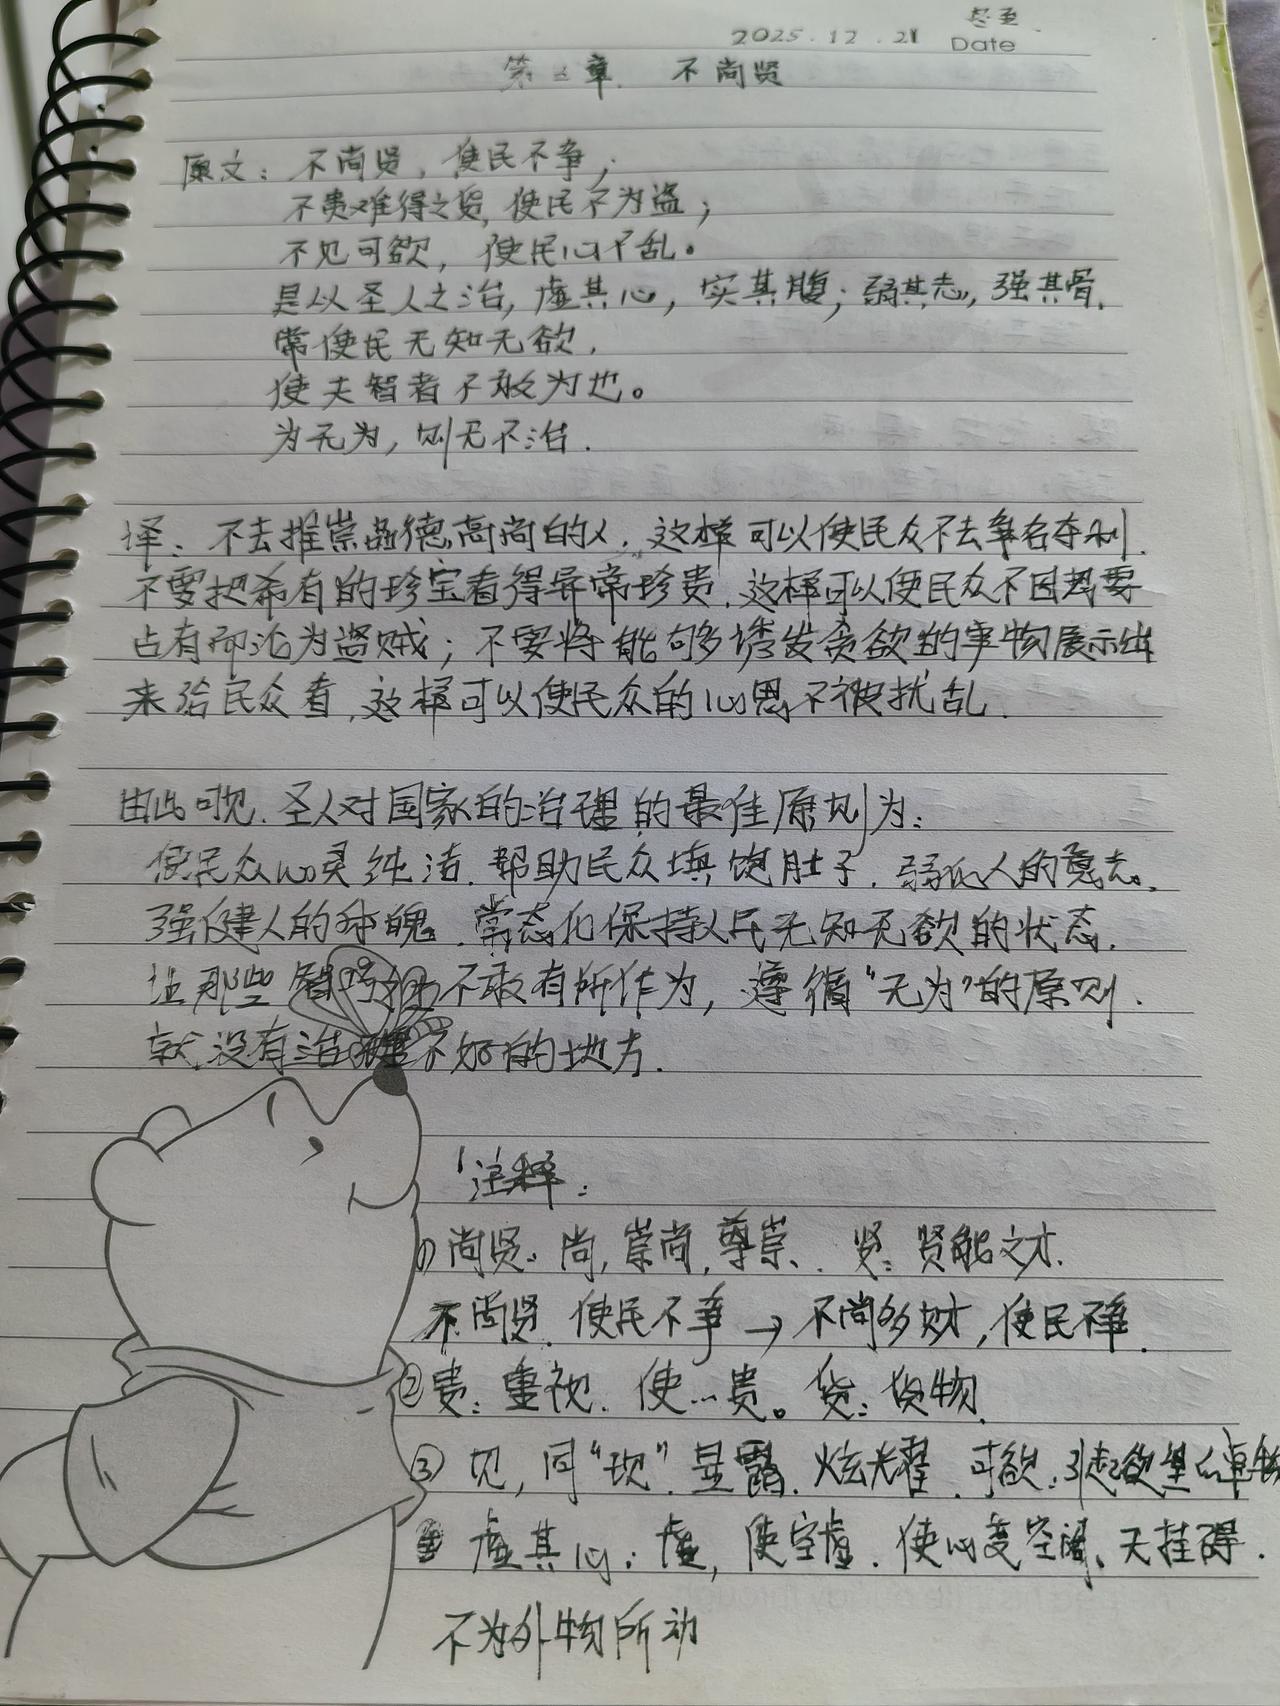 冬至
2025.12.21 Date
第三章 不尚贤
原文：不尚贤，使民不争；
不贵难得之货，使民不为盗；
不见可欲，使民心不乱。
是以圣人之治，虚其心，实其腹；弱其志，强其骨，
常使民无知无欲，
使夫智者不敢为也。
为无为，则无不治.
译：不去推崇品德高尚的人，这样可以使民众不去争名夺利.
不要把希有的珍宝看得异常珍贵，这样可以使民众不因想要
占有而沦为盗贼；不要将能够诱发贪欲的事物展示出
来给民众看，这样可以使民众的心思不被扰乱.
由此可见.圣人对国家的治理的最佳原则为：
使民众心灵纯洁.帮助民众填饱肚子.弱化人的意志.
强健人的体魄.常态化保持人民无知无欲的状态.
让那些智巧的不敢有所作为，遵循“无为”的原则.
就没有治理不好的地方.
注释：
①尚贤：尚，崇尚，尊崇、贤：贤能之才.
不尚贤.使民不争→不尚多财，使民不争.
②贵：重视.使…贵。货：货物.
③见，同“现”.显露.炫耀.可欲：引起欲望的事物
虚其心：虚，使空虚.使心变空阔、无挂碍.
不为外物所动